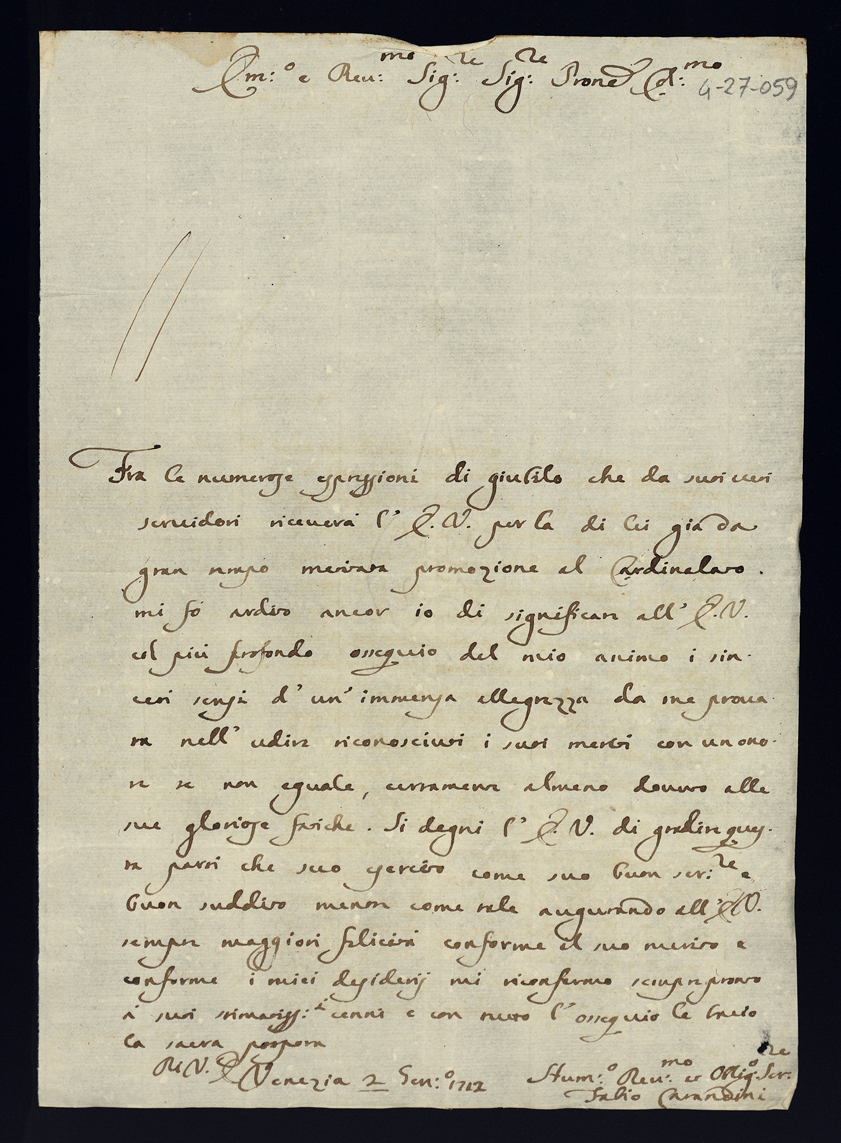 Em:o e Reu:mo Sig:re Sig:re Prone Col:mo
4-27-059
Fra le numerose espressioni di giubilo che da suoi ueri
seruidori riceuerà l' E. V. per la di lei già da
gran tempo meritata promozione al Cardinalato.
mi fo ardito ancor io di significare all' E. V.
col più profondo ossequio del mio animo i sin-
ceri sensi d' un' immensa allegrezza da me proua-
ta nell' udire riconosciuti i suoi meriti con un ono-
re se non eguale, certamente almeno douuto alle
sue gloriose fatiche. Si degni l' E. V. di gradire ques-
ta parte che seco esercito come suo buon ser:re e
buon suddito mentre come tale augurando all' E. V.
sempre maggiori felicità conforme al suo merito e
conforme i miei desiderij mi riconfermo sempre pronto
a' suoi stimatiss:i cenni e con tutto l' ossequio le bacio
la sacra porpora
Di V. E. Venezia 2 Gen:o 1712
Hum:o Reu:mo et Oblig:o Ser:re
Fabio Carandini